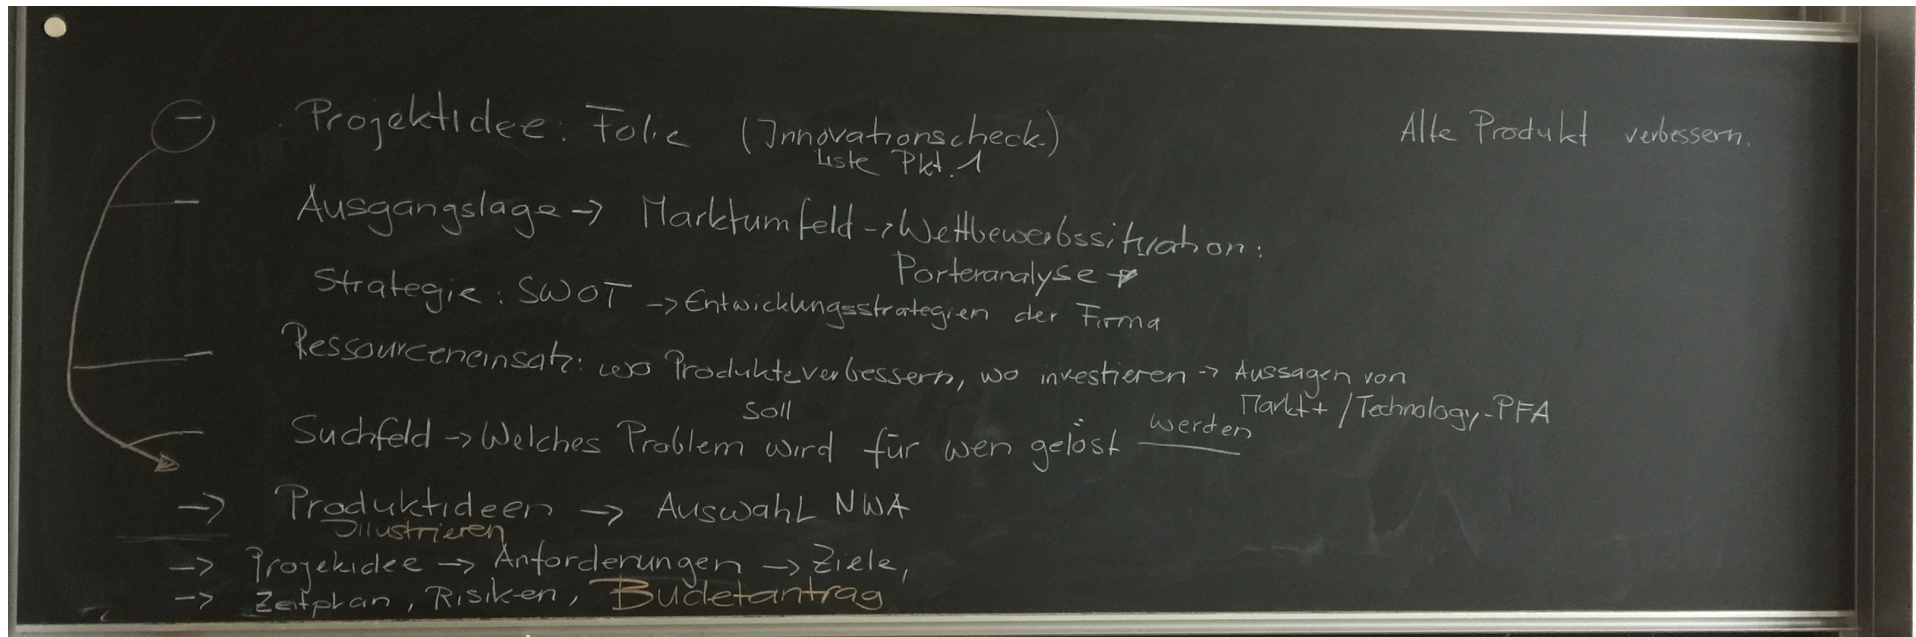 – Projektidee: Folie (Innovationscheck.) Alte Produkt verbessern.
Liste Pkt. 1
– Ausgangslage -> Marktumfeld -> Wettbewerbssituation:
Porteranalyse
Strategie: SWOT -> Entwicklungsstrategien der Firma
– Ressourceneinsatz: wo Produkte verbessern, wo investieren -> Aussagen von
Markt + / Technology-PFA
soll
– Suchfeld -> Welches Problem wird für wen gelöst werden
-> Produktideen -> Auswahl NWA
Illustrieren
-> Projekidee -> Anforderungen -> Ziele,
-> Zeitplan, Risiken, Budetantrag